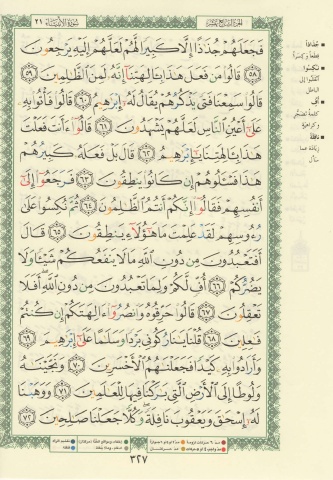 الجزء السابع عشر
سورة الأنبياء ٢١
فَجَعَلَهُمْ جُذَٰذًا إِلَّا كَبِيرًا لَّهُمْ لَعَلَّهُمْ إِلَيْهِ يَرْجِعُونَ
﴿٥٨﴾ قَالُوا۟ مَن فَعَلَ هَٰذَا بِـَٔالِهَتِنَآ إِنَّهُۥ لَمِنَ ٱلظَّٰلِمِينَ ﴿٥٩﴾
قَالُوا۟ سَمِعْنَا فَتًى يَذْكُرُهُمْ يُقَالُ لَهُۥٓ إِبْرَٰهِيمُ ﴿٦٠﴾ قَالُوا۟ فَأْتُوا۟ بِهِۦ
عَلَىٰٓ أَعْيُنِ ٱلنَّاسِ لَعَلَّهُمْ يَشْهَدُونَ ﴿٦١﴾ قَالُوٓا۟ ءَأَنتَ فَعَلْتَ
هَٰذَا بِـَٔالِهَتِنَا يَٰٓإِبْرَٰهِيمُ ﴿٦٢﴾ قَالَ بَلْ فَعَلَهُۥ كَبِيرُهُمْ
هَٰذَا فَسْـَٔلُوهُمْ إِن كَانُوا۟ يَنطِقُونَ ﴿٦٣﴾ فَرَجَعُوٓا۟ إِلَىٰٓ
أَنفُسِهِمْ فَقَالُوٓا۟ إِنَّكُمْ أَنتُمُ ٱلظَّٰلِمُونَ ﴿٦٤﴾ ثُمَّ نُكِسُوا۟ عَلَىٰ
رُءُوسِهِمْ لَقَدْ عَلِمْتَ مَا هَٰٓؤُلَآءِ يَنطِقُونَ ﴿٦٥﴾ قَالَ
أَفَتَعْبُدُونَ مِن دُونِ ٱللَّهِ مَا لَا يَنفَعُكُمْ شَيْـًٔا وَلَا
يَضُرُّكُمْ ﴿٦٦﴾ أُفٍّ لَّكُمْ وَلِمَا تَعْبُدُونَ مِن دُونِ ٱللَّهِ أَفَلَا
تَعْقِلُونَ ﴿٦٧﴾ قَالُوا۟ حَرِّقُوهُ وَٱنصُرُوٓا۟ ءَالِهَتَكُمْ إِن كُنتُمْ
فَٰعِلِينَ ﴿٦٨﴾ قُلْنَا يَٰنَارُ كُونِى بَرْدًا وَسَلَٰمًا عَلَىٰٓ إِبْرَٰهِيمَ ﴿٦٩﴾
وَأَرَادُوا۟ بِهِۦ كَيْدًا فَجَعَلْنَٰهُمُ ٱلْأَخْسَرِينَ ﴿٧٠﴾ وَنَجَّيْنَٰهُ
وَلُوطًا إِلَى ٱلْأَرْضِ ٱلَّتِى بَٰرَكْنَا فِيهَا لِلْعَٰلَمِينَ ﴿٧١﴾ وَوَهَبْنَا
لَهُۥٓ إِسْحَٰقَ وَيَعْقُوبَ نَافِلَةً وَكُلًّا جَعَلْنَا صَٰلِحِينَ ﴿٧٢﴾
جُذاذاً
قِطَعاً وكِسَراً
نُكِسوا
الباطل
أُفٍّ
كلمة تضجر
وكراهية
نافلة
زيادة عما
سأل
٣٢٧